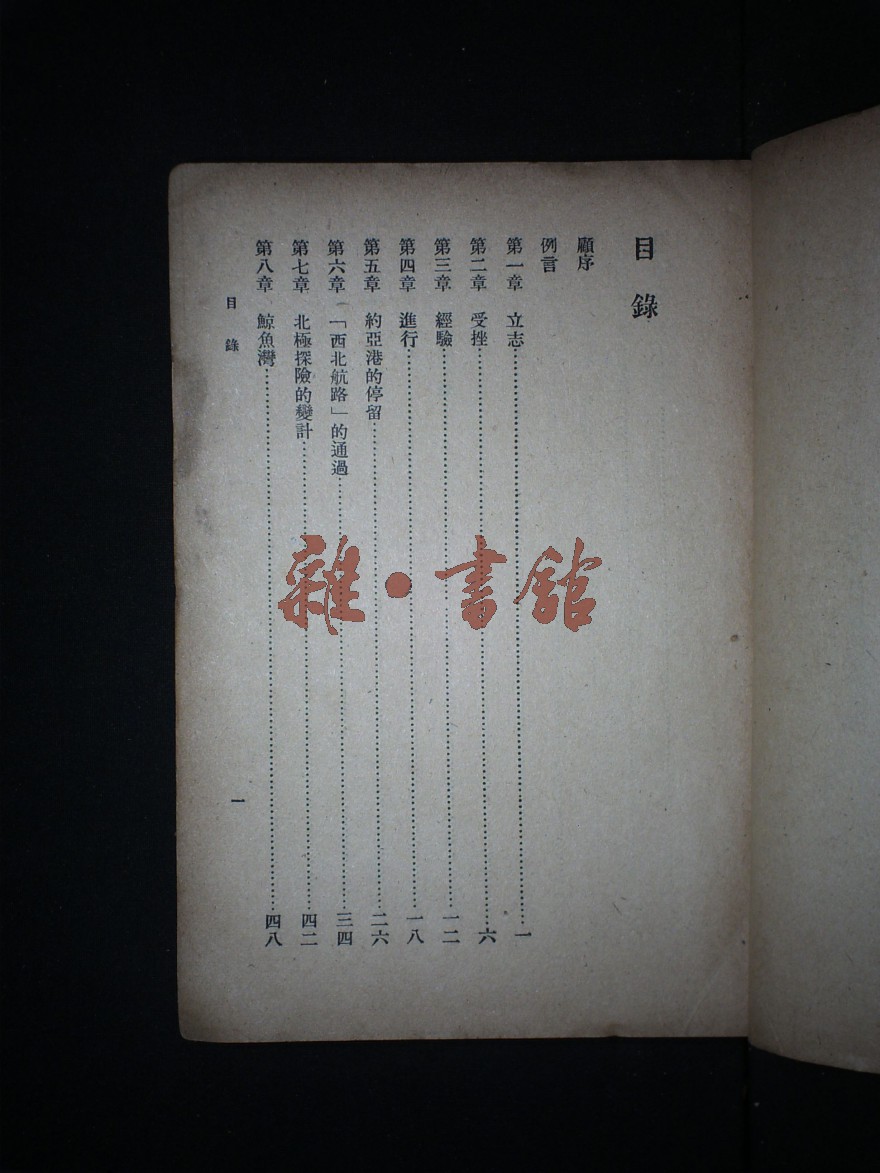 目錄
顧序
例言
第一章 立志…………一
第二章 受挫…………六
第三章 經驗…………一二
第四章 進行…………一八
第五章 約亞港的停留…………二六
第六章 「西北航路」的通過…………三四
第七章 北極探險的變計…………四二
第八章 鯨魚灣…………四八
目錄 一
雜·書館